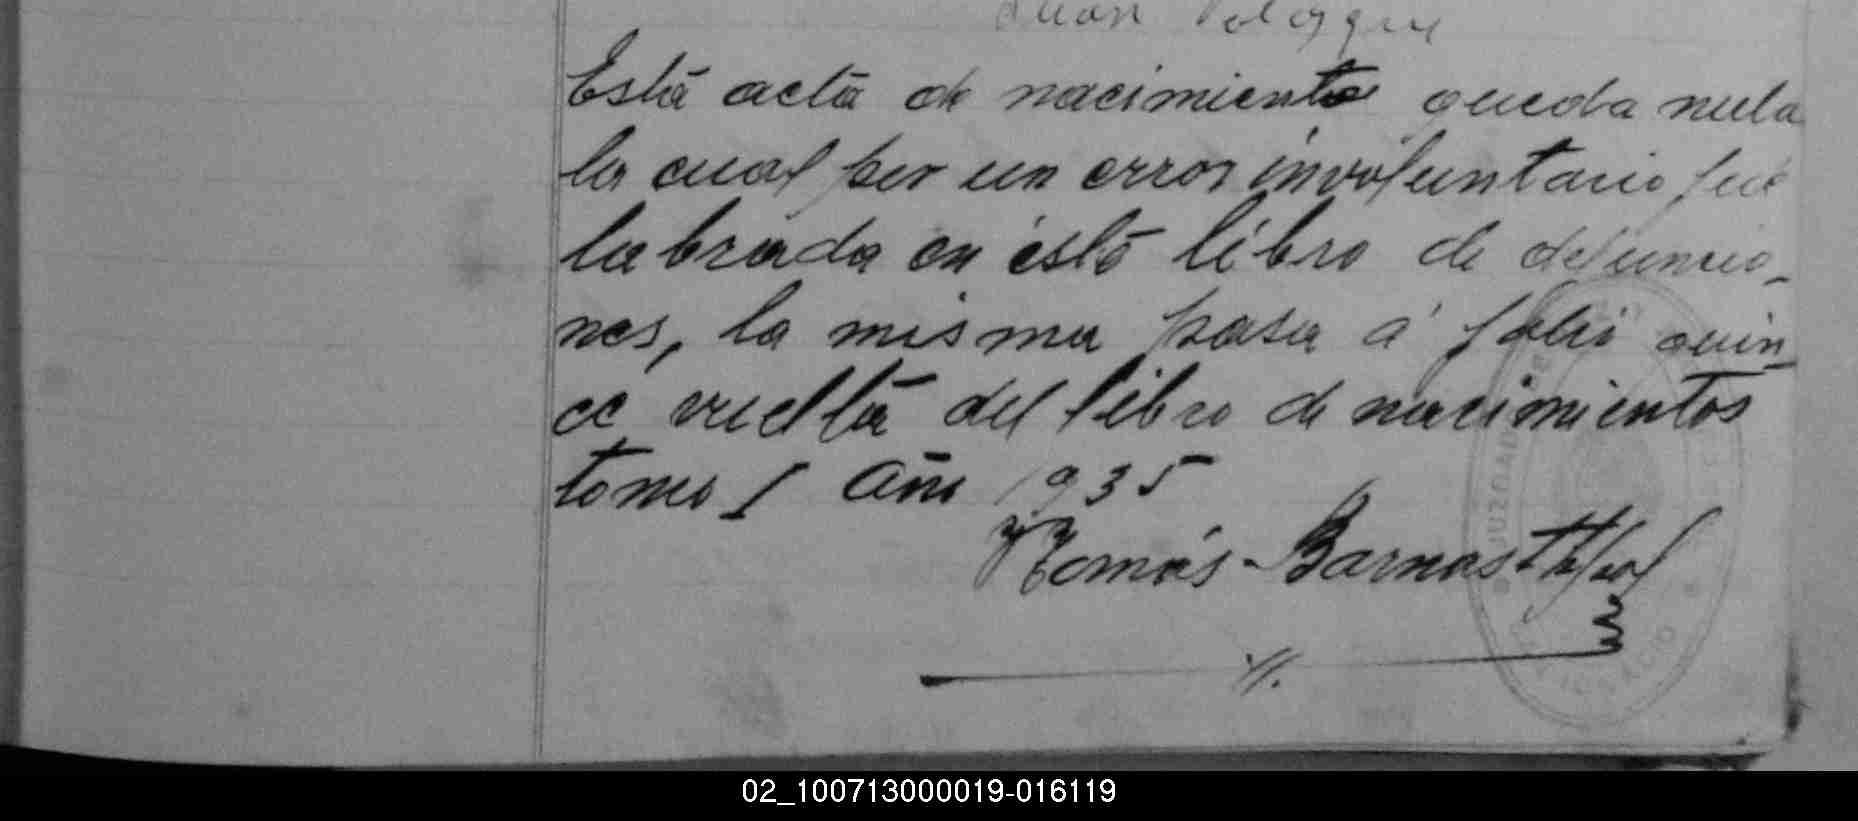 Juan
Está acta de nacimiento queda nula
la cual por un error involuntario fué
labrada en ésto libro de defuncio-
nes, la misma pasa á folio quin-
ce vuelta del libro de nacimientos
tomo I año 1935
Tomás Barnast
JUZGADO
02_100713000019-016119